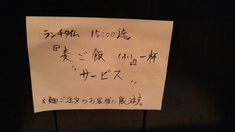 ランチタイム 15:00迄
『麦ご飯 (小)』一杯
"サービス"
※麺ご注文のお客様に限ります。